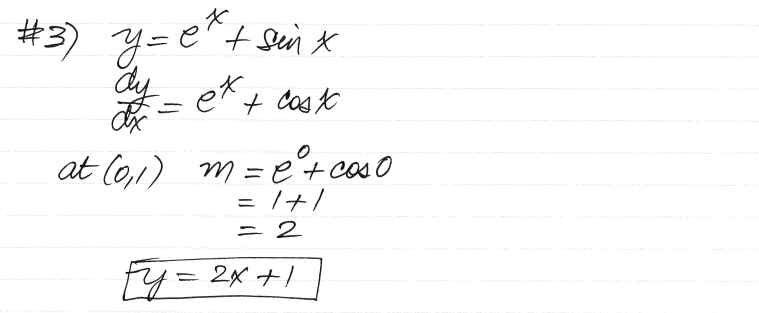 #3) y = e^x + sin x
dy/dx = e^x + cos x
at (0,1) m = e^0 + cos 0
= 1 + 1
= 2
y = 2x + 1